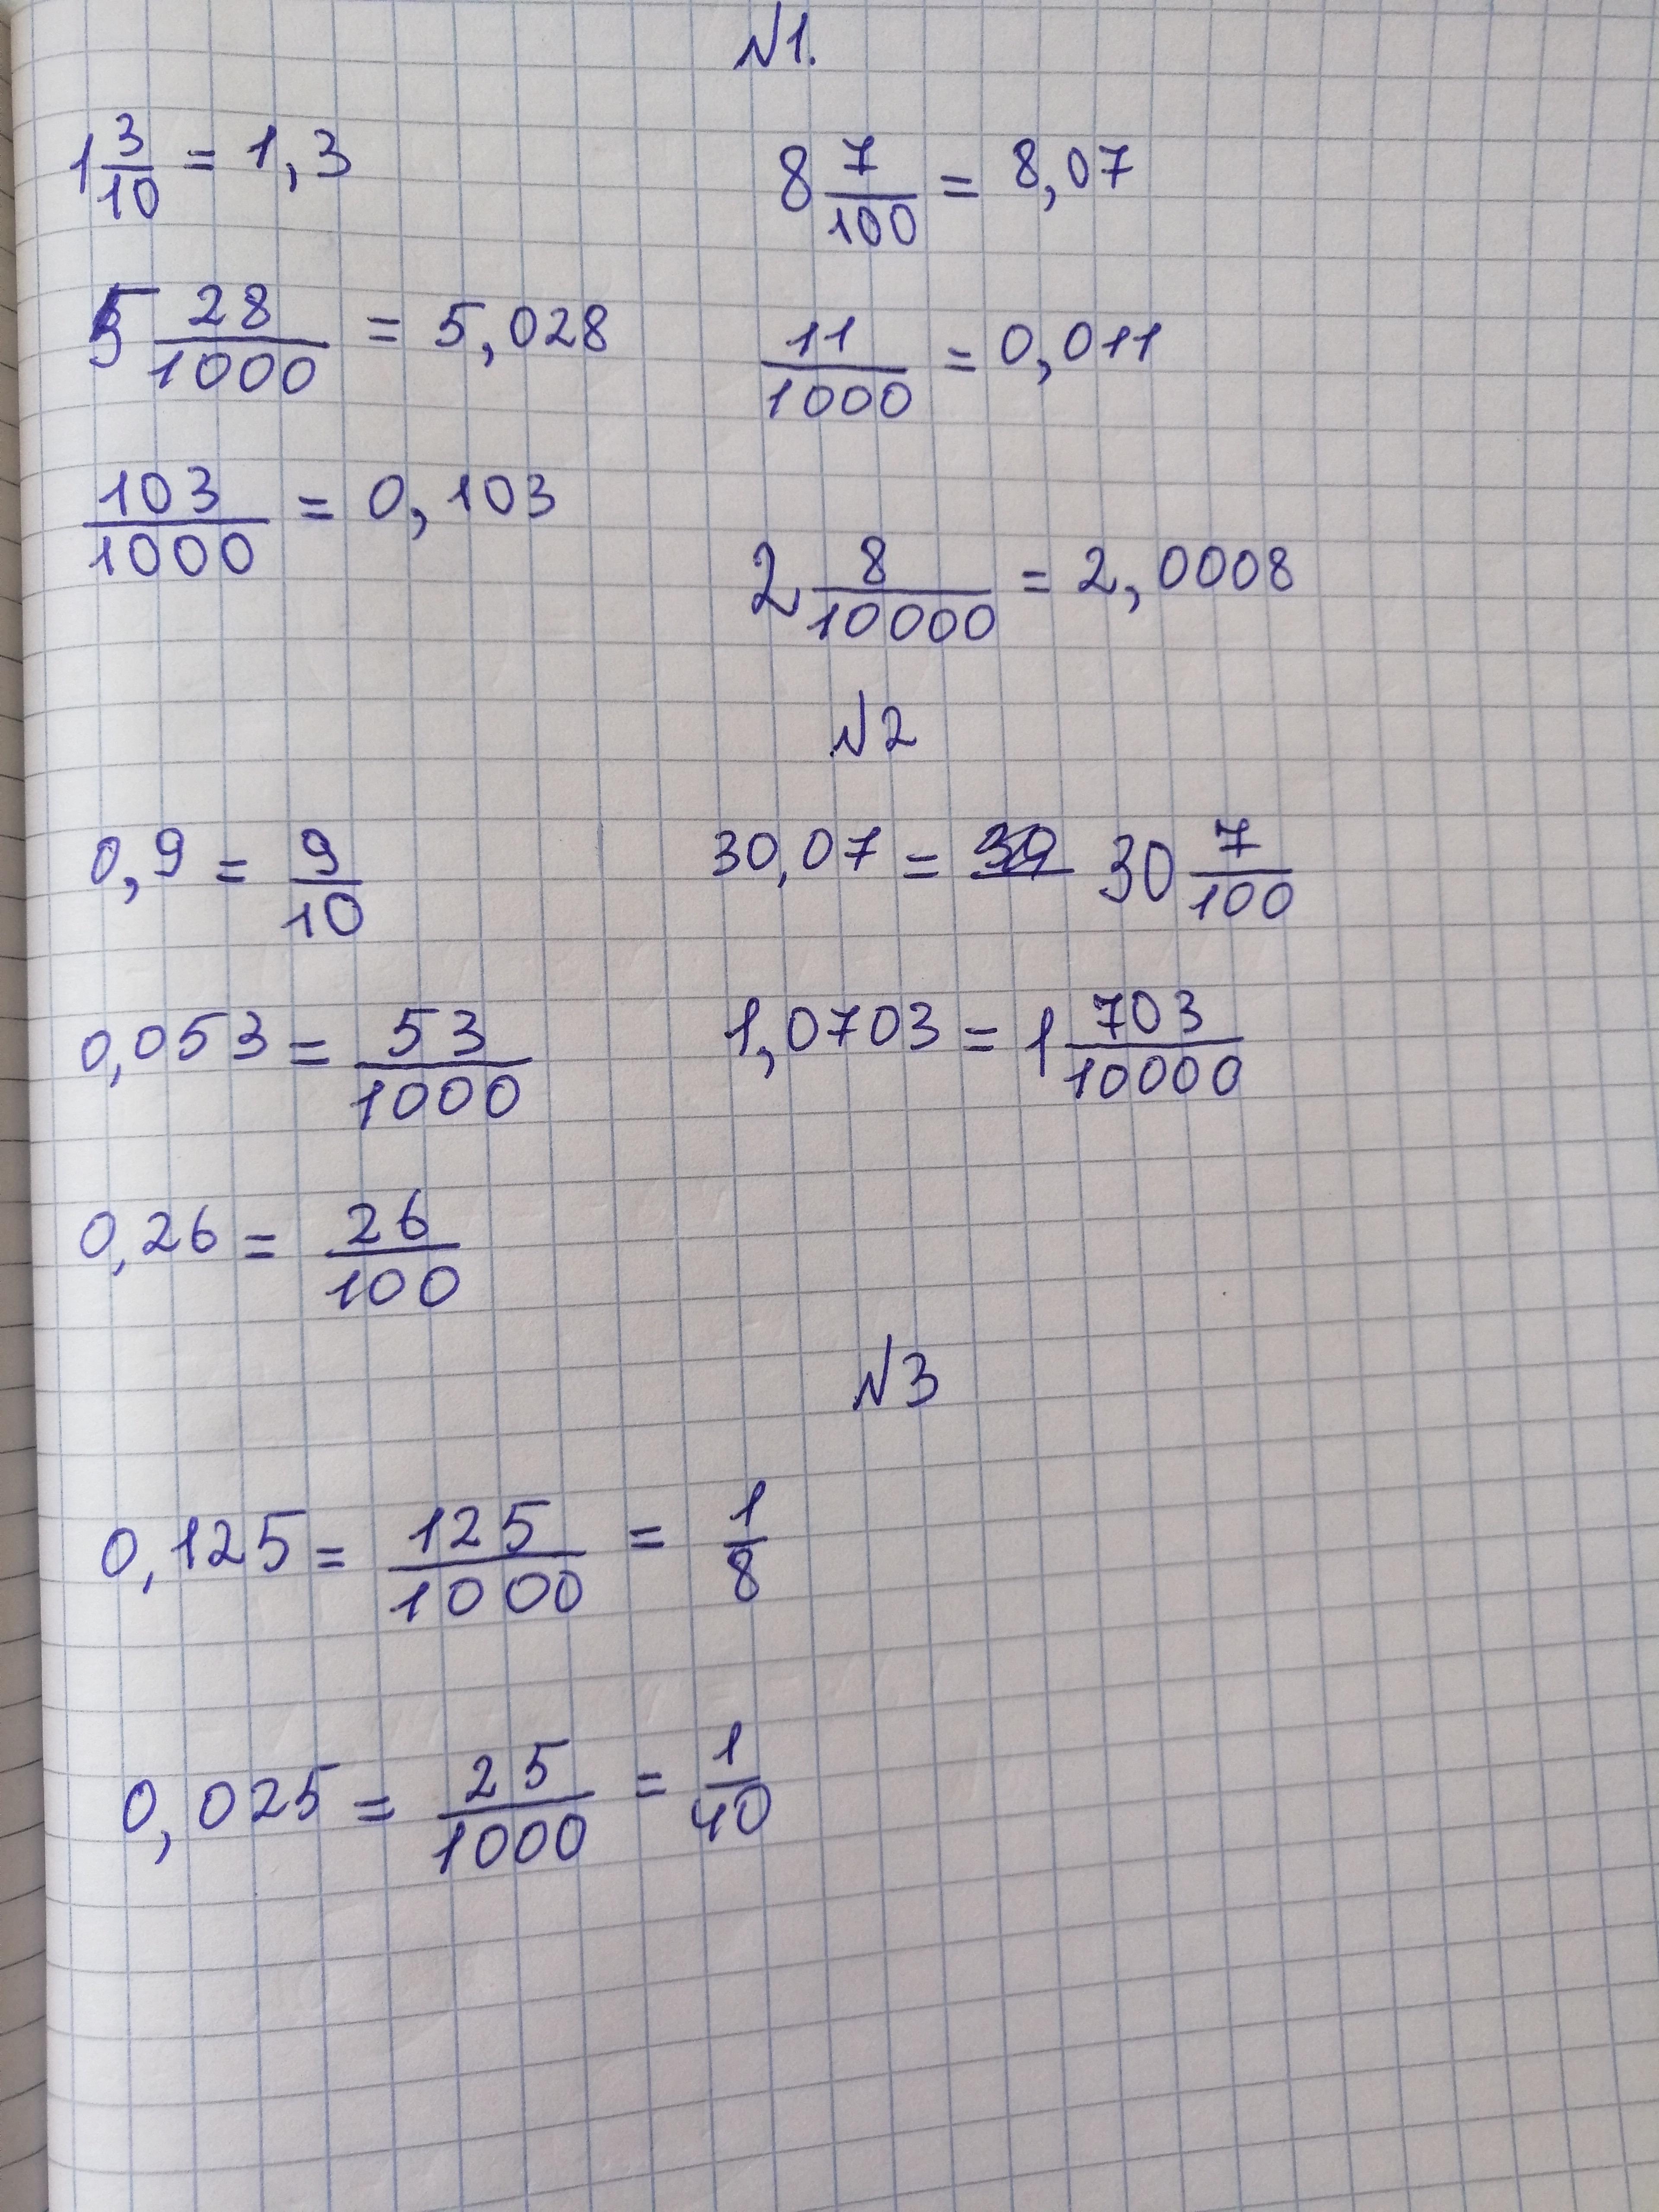 №1.
1 3/10 = 1,3
8 7/100 = 8,07
5 28/1000 = 5,028
11/1000 = 0,011
103/1000 = 0,103
2 8/10000 = 2,0008
№2
0,9 = 9/10
30,07 = 30 7/100
0,053 = 53/1000
1,0703 = 1 703/10000
0,26 = 26/100
№3
0,125 = 125/1000 = 1/8
0,025 = 25/1000 = 1/40